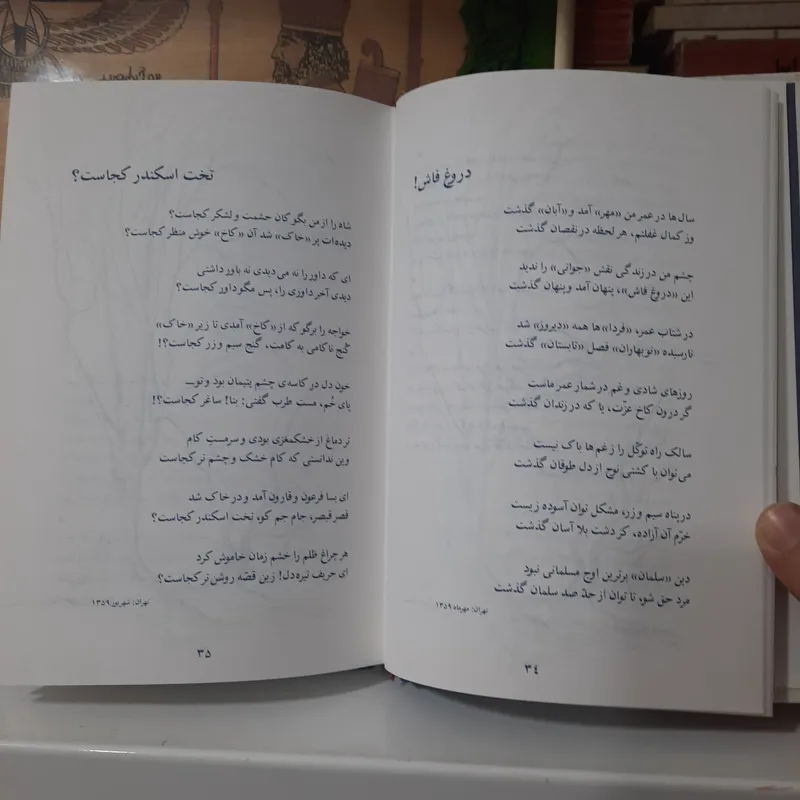 دروغ فاش!
سال‌ها در عمر من «مهر» آمد و «آبان» گذشت
وز کمال غفلتم، هر لحظه در نقصان گذشت
چشم من در زندگی نقش «جوانی» را ندید
این «دروغ فاش»، پنهان آمد و پنهان گذشت
در شتاب عمر، «فردا»ها همه «دیروز» شد
نارسیده «نوبهاران» فصل «تابستان» گذشت
روزهای شادی و غم در شمار عمر ماست
گر درون کاخ عزّت، یا که در زندان گذشت
سالک راه توکّل را ز غم‌ها باک نیست
می‌توان با کشتی نوح از دل طوفان گذشت
در پناه سیم و زر، مشکل توان آسوده زیست
خرّم آن آزاده، کز دشت بلا آسان گذشت
دین «سلمان» برترین اوج مسلمانی نبود
مرد حق شو، تا توان از حدّ صد سلمان گذشت
تهران: مهرماه ۱۳۵۹
۳۴
تخت اسکندر کجاست؟
شاه را از من بگو کان حشمت و لشکر کجاست؟
دیده‌ات پر «خاک» شد آن «کاخ» خوش منظر کجاست؟
ای که داور را نه می‌دیدی نه باور داشتی
دیدی آخر داوری را، پس مگو داور کجاست؟
خواجه را برگو که از «کاخ» آمدی تا زیر «خاک»
کُنج ناکامی به کامت، گنج سیم و زر کجاست؟!
خون دل در کاسه‌ی چشم یتیمان بود و تو
پای خُم، مست طرب گفتی: بتا! ساغر کجاست؟!
تر دماغ از خشکمغزی بودی و سرمستِ کام
وین ندانستی که کام خشک و چشم تر کجاست
ای بسا فرعون و قارون آمد و در خاک شد
قصر قیصر، جام جم کو، تخت اسکندر کجاست؟
هر چراغ ظلم را خشم زمان خاموش کرد
ای حریف تیره‌دل! زین قصّه روشن‌تر کجاست؟
تهران: شهریور ۱۳۵۹
۳۵